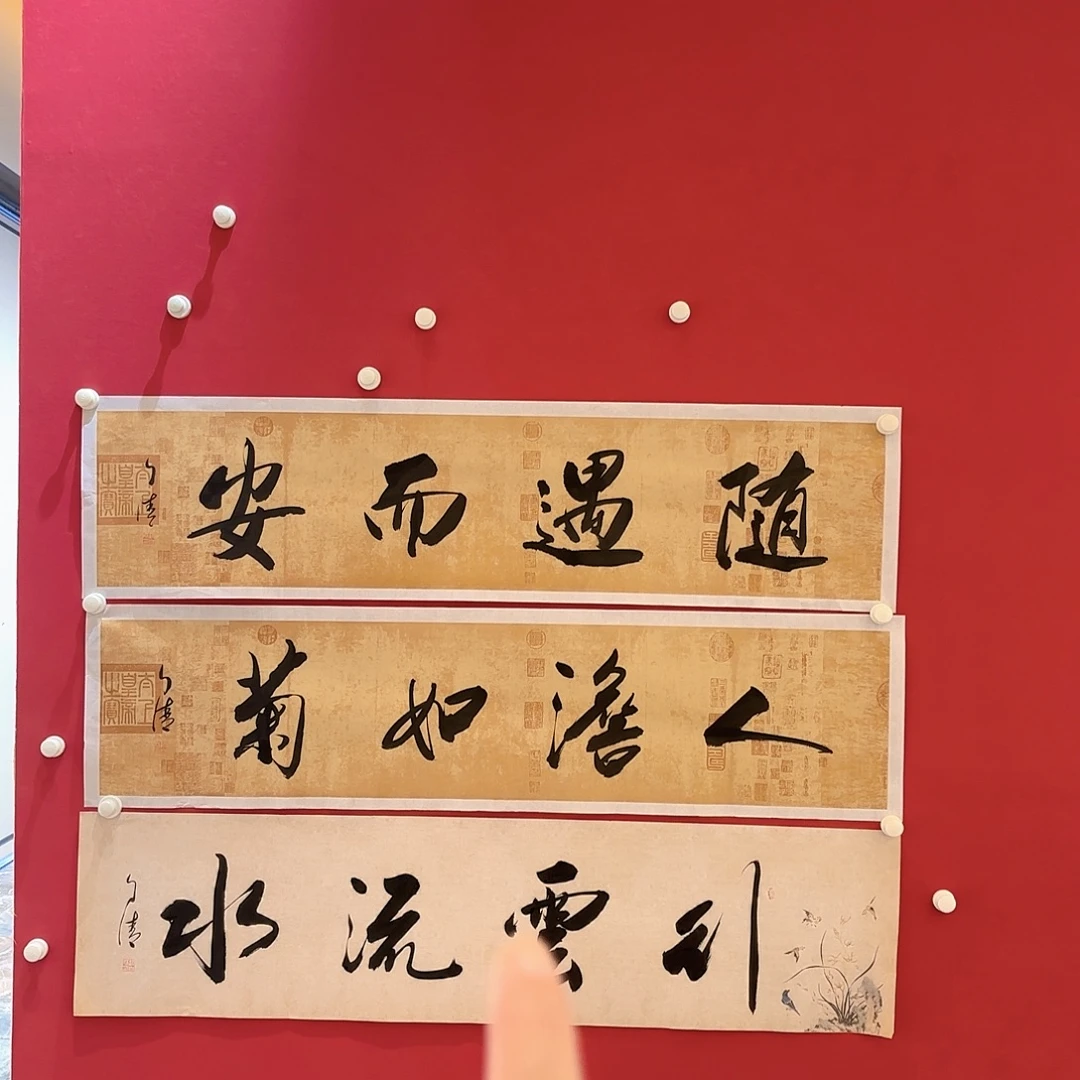 随遇而安
人澹如菊
行雲流水